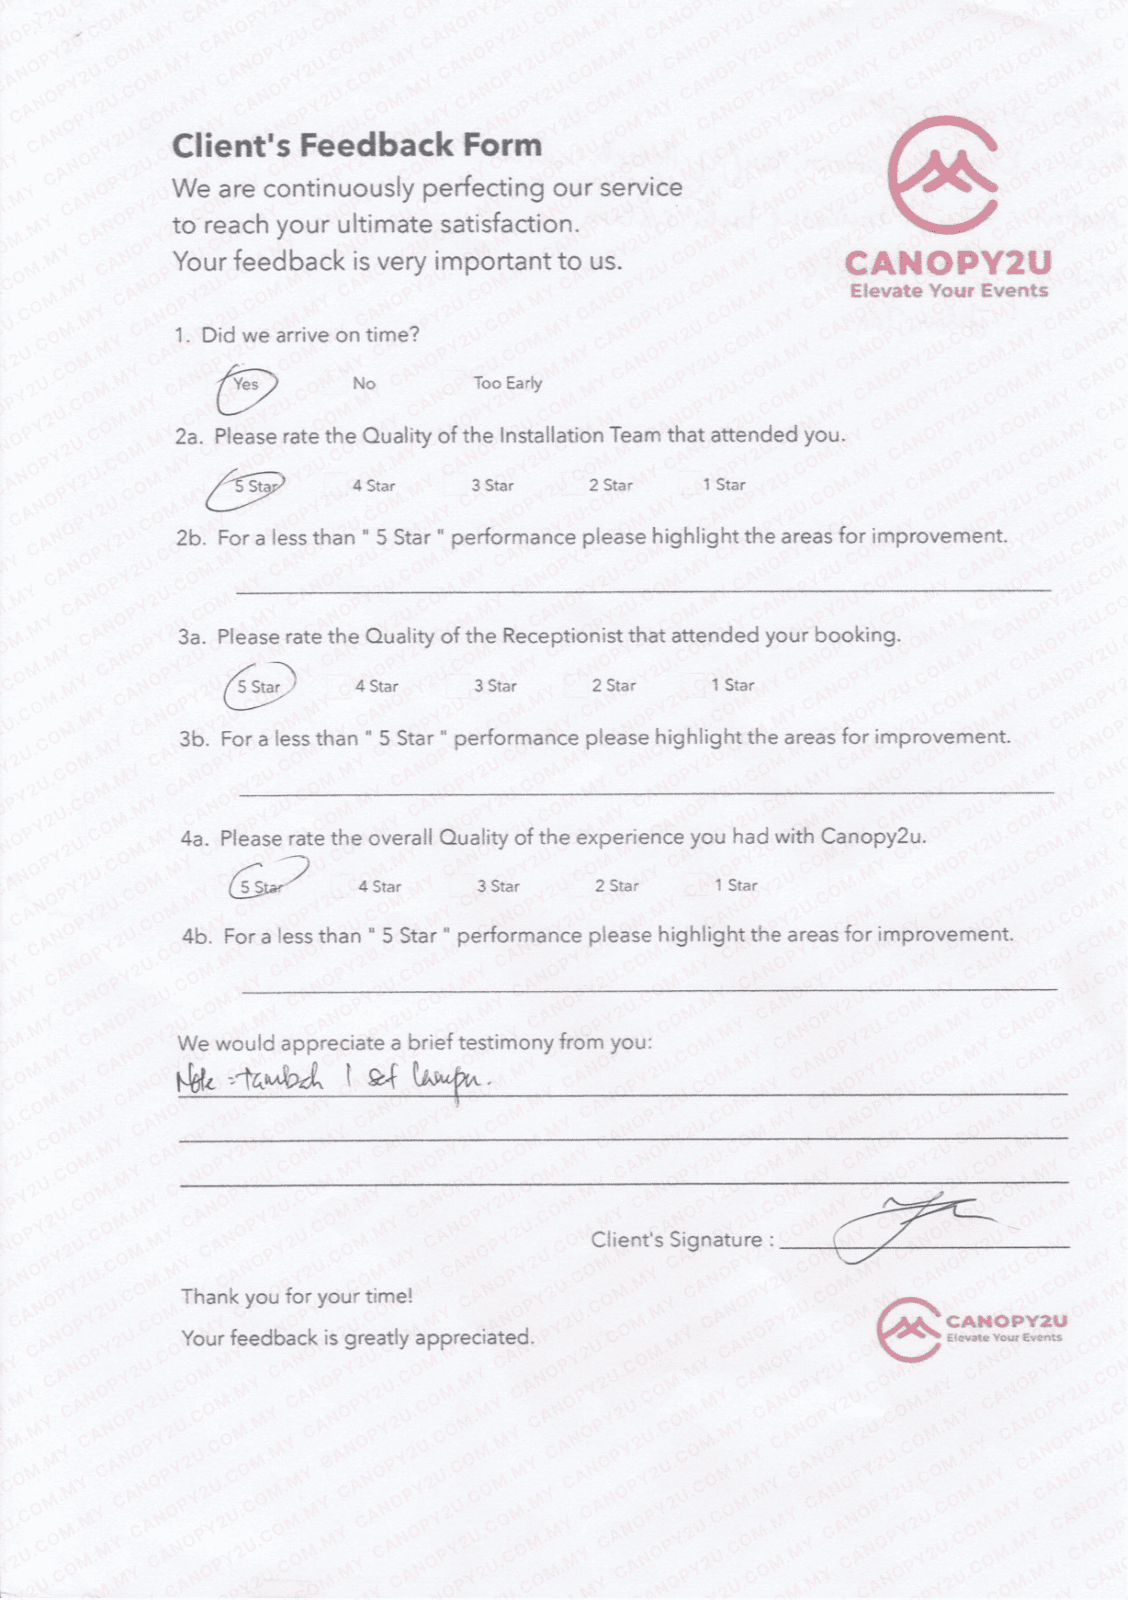 Client's Feedback Form
We are continuously perfecting our service
to reach your ultimate satisfaction.
Your feedback is very important to us.
CANOPY2U
Elevate Your Events
1. Did we arrive on time?
Yes No Too Early
2a. Please rate the Quality of the Installation Team that attended you.
5 Star 4 Star 3 Star 2 Star 1 Star
2b. For a less than " 5 Star " performance please highlight the areas for improvement.
3a. Please rate the Quality of the Receptionist that attended your booking.
5 Star 4 Star 3 Star 2 Star 1 Star
3b. For a less than " 5 Star " performance please highlight the areas for improvement.
4a. Please rate the overall Quality of the experience you had with Canopy2u.
5 Star 4 Star 3 Star 2 Star 1 Star
4b. For a less than " 5 Star " performance please highlight the areas for improvement.
We would appreciate a brief testimony from you:
Note = tambah 1 set lampu.
Client's Signature :
Thank you for your time!
Your feedback is greatly appreciated.
CANOPY2U
Elevate Your Events